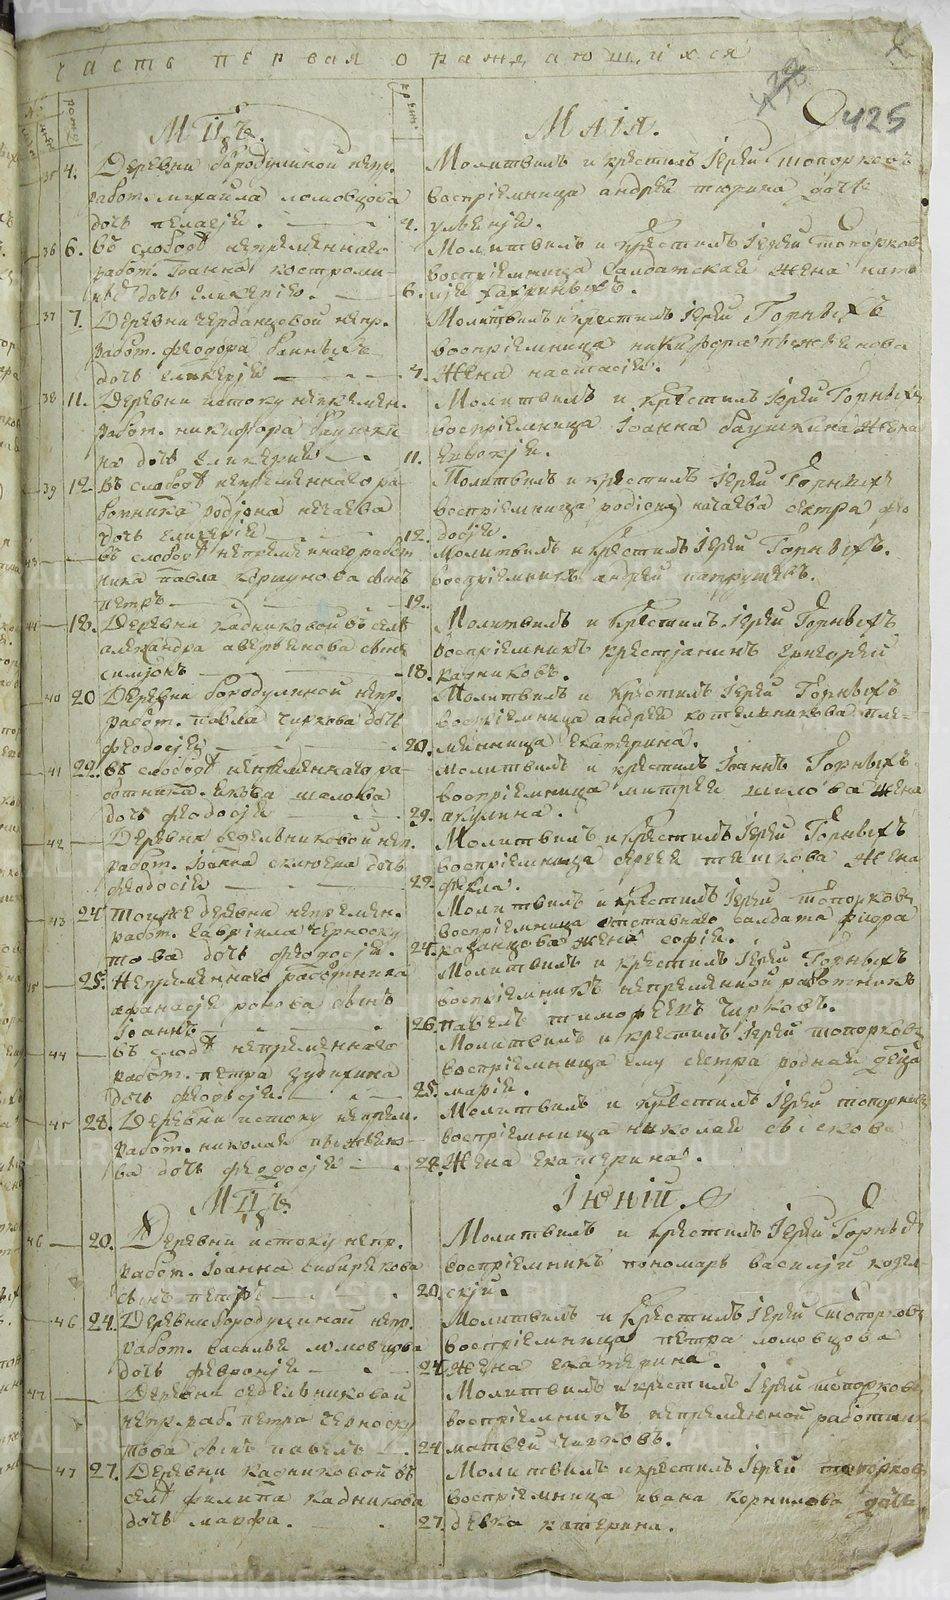 часть первая о раждающихся
425
Мцъ Маія.
35 4. Деревни бородулиной непр.
работ. михаила ломовцова
дочь пелагія.
Молитвилъ и крестилъ Іерей топорковъ
воспріемница андрея тюрина дочь
4. ульянія.
36 6. Въ слободѣ непременнаго
работ. Іоанна костроми-
дочь гликерія.
Молитвилъ и крестилъ Іерей топорковъ
воспріемница салдатская жена ната
6. лія
37 7. Деревни черданцовой непр.
работ. феодора
дочь гликерія
Молитвилъ и крестилъ Іерей Горныхъ
воспріемница никифора пьянкова
7. жена настасія.
38 11. Деревни истоку непремен.
работ. никифора баушки
на дочь гликерия
Молитвилъ и крестилъ Іерей Горныхъ
воспріемница Іоанна баушкина жена
11.
39 12 въ слободѣ непременнаго ра-
ботника родіона нечаева
дочь гликерія
Молитвилъ и крестилъ Іерей Горныхъ
воспріемница родіона нечаева сестра фео
12. досія.
43 въ слободѣ непременнаго работ
ника павла коршунова сынъ
петръ
Молитвилъ и крестилъ Іерей Горныхъ.
воспріемникъ андрей патрушевъ.
12.
44 18. Деревни кадниковой въ селѣ
александра аверьянова сынъ
симіонъ
Молитвилъ и крестилъ Іерей Горныхъ
воспріемникъ крестіанинъ григорей
18. кадниковъ.
40 20 Деревни бородулиной непр.
работ. павла чиркова дочь
феодосія
Молитвилъ и крестилъ Іерей Горныхъ
воспріемница андрея котельникова пле-
20. мянница екатерина.
41 22. въ слободѣ непременнаго ра-
ботника якова шалова
дочь феодосія
Молитвилъ и крестилъ Іоаннъ Горныхъ
воспріемница митрея шилова жена
22. акулина.
42 Деревни седельниковой неп.
работ. Іоанна дочь
феодосія
Молитвилъ и крестилъ Іерей Горныхъ
воспріемница сергея жена
22. фекла.
43 24 тоиже деревни непремен.
работ. гавріила черноску
това дочь феодосія.
Молитвилъ и крестилъ Іерей топорковъ
воспріемница отставнаго салдата фидора
24. казанцова жена софія.
45 25. непременнаго работника
афанасія рокова сынъ
Іоаннъ
Молитвилъ и крестилъ Іерей Горныхъ
воспріемникъ непременной работникъ
26. павелъ тимофеевъ чирковъ.
44 въ слобѣ непременнаго
работ. петра зудихина
дочь феодосія.
Молитвилъ и крестилъ Іерей топорковъ
воспріемница ему сестра родная девца
25. марія.
45 28. Деревни истоку непрем.
работ. николая пьянко-
ва дочь феодосія
Молитвилъ и крестилъ Іерей топорковъ
воспріемница николая
28. жена екатерина.
Мцъ Іюній.
46 20. Деревни истоку непр.
работ. Іоанна сибирякова
сынъ петръ
Молитвилъ и крестилъ Іерей Горныхъ
воспріемникъ пономарь василій козел-
20. скій.
46 24. Деревни бородулиной непр.
работ. василья ломовцова
дочь февронія
Молитвилъ и крестилъ Іерей топорковъ
воспріемница петра ломовцова
24. жена екатерина.
47 Деревни седельниковой
непр. раб. петра черноску
това сынъ павелъ
Молитвилъ и крестилъ Іерей топорковъ
воспріемникъ непременной работникъ
24 матвей чирковъ.
47 27. Деревни кадниковой въ
селѣ филипа кадникова
дочь марфа.
Молитвилъ и крестилъ Іерей топорковъ
воспріемница ивана корнилова дочь
27. девка катерина.
METRIKI.GASO-URAL.RU